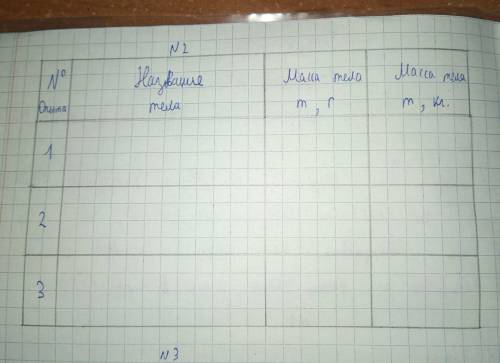 №2
№ Опыта
Название тела
Масса тела m, г
Масса тела m, кг.
1
2
3
№3